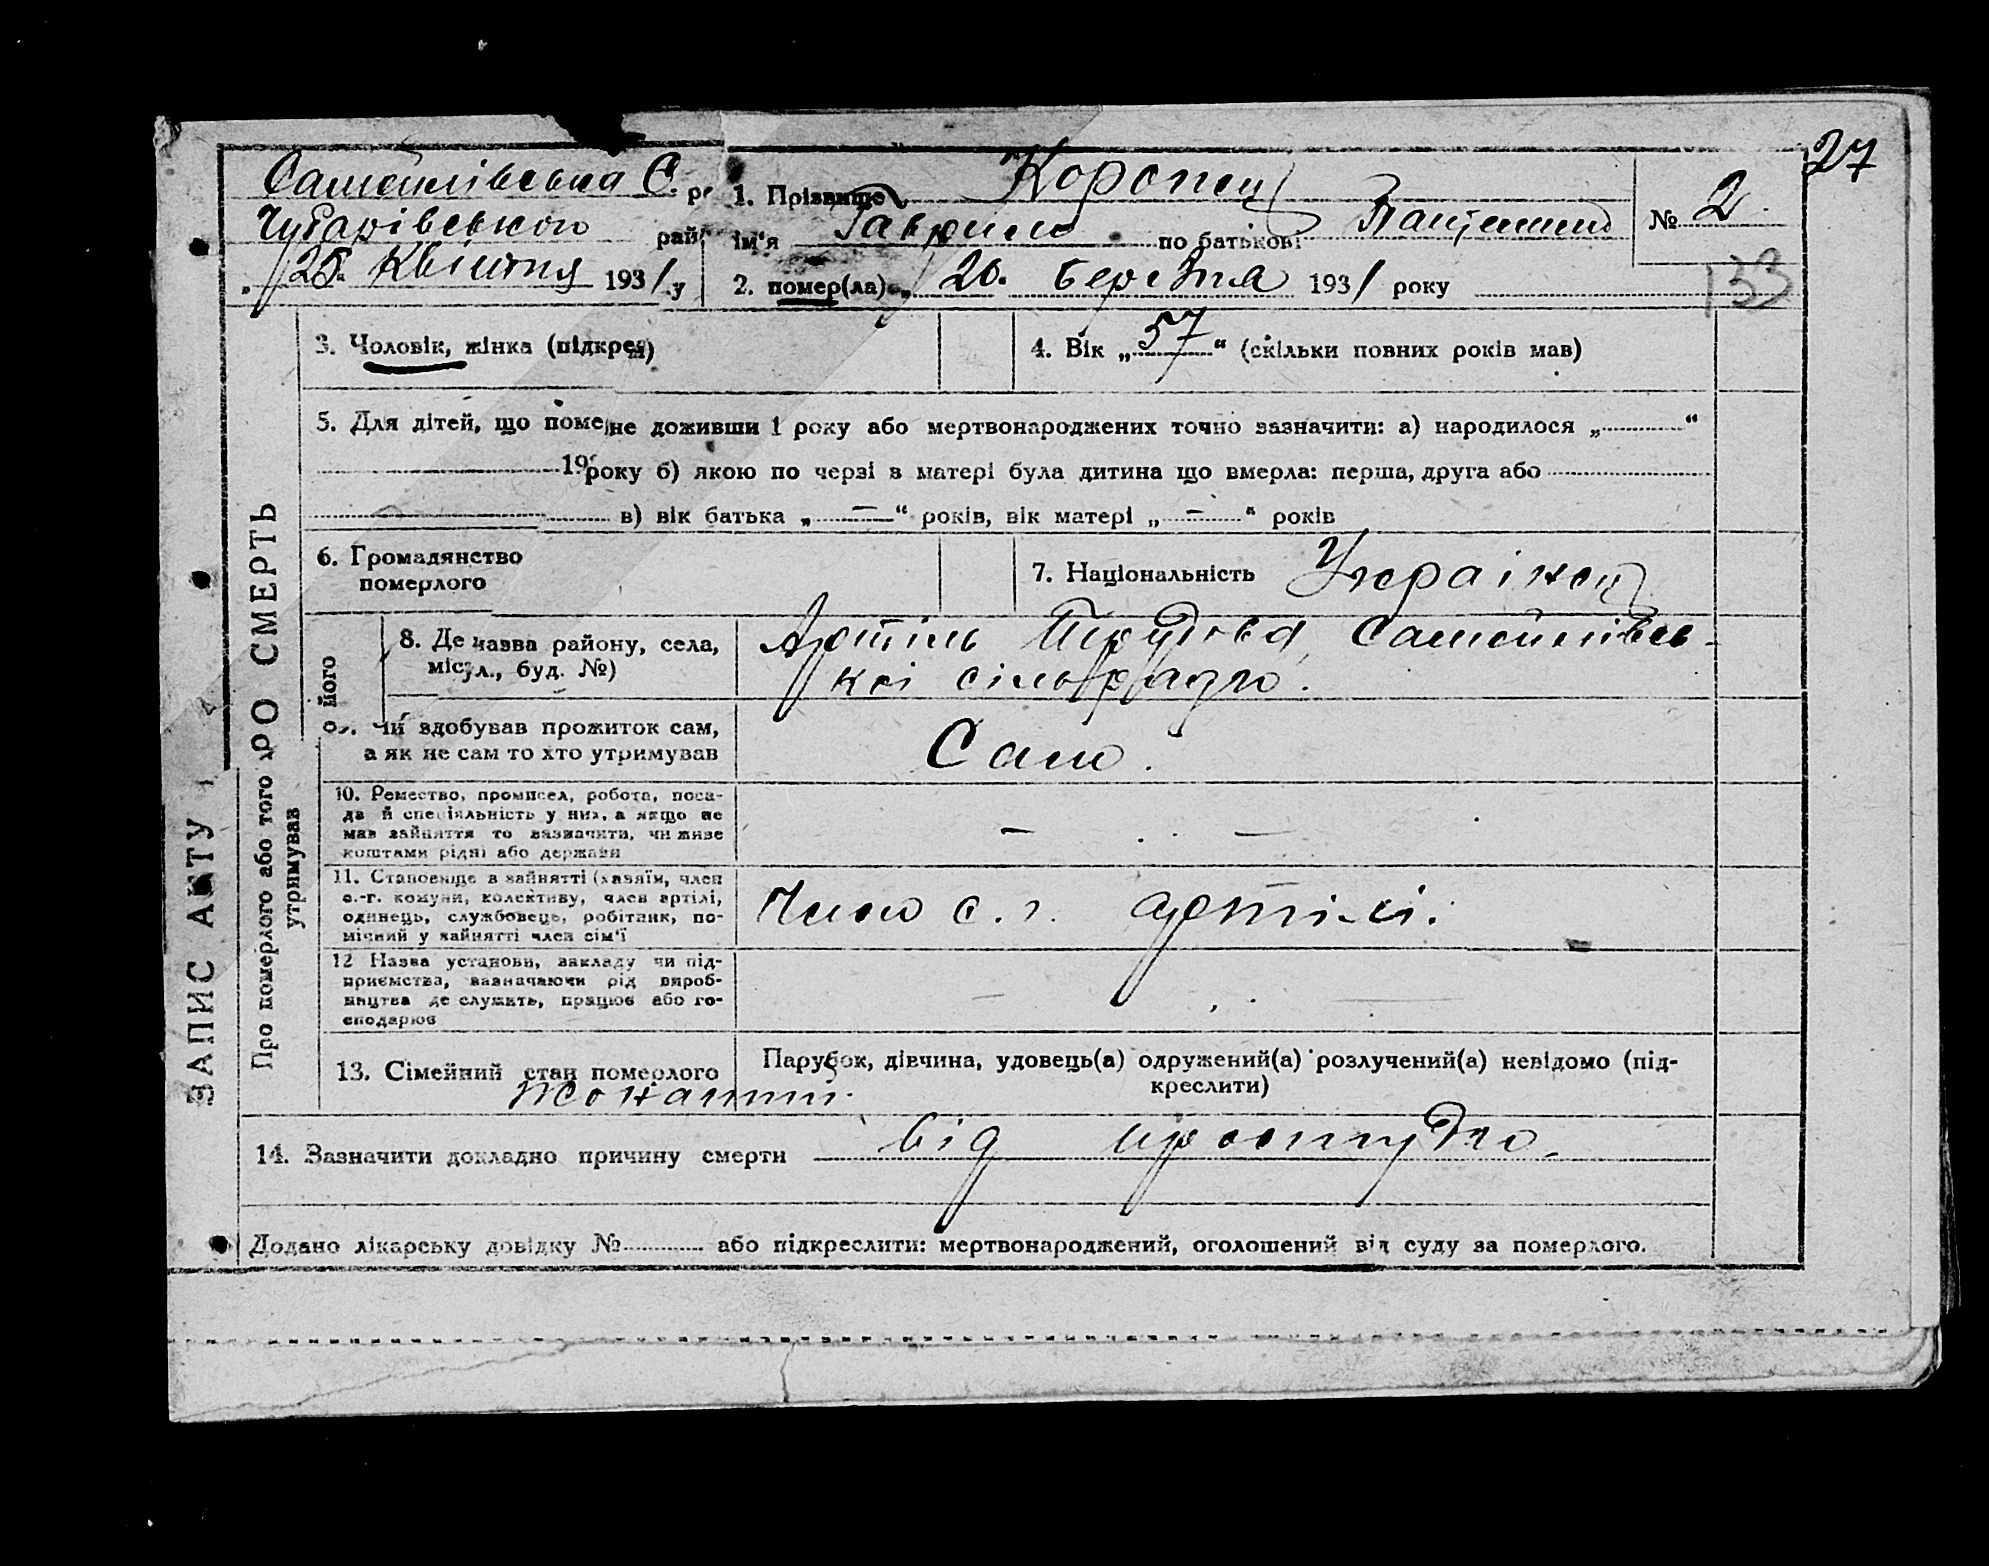 27
Самойлівська С. р
Чубарівського рай
25 Квітня 1931 у
1. Прізвище Коропец
ім'я Гаврило по батькові
2. помер(ла) „20. Березня 1931 року
№ 2
133
3. Чоловік, жінка (підкрел)
4. Вік „57“ (скільки повних років мав)
5. Для дітей, що поме не доживши 1 року або мертвонароджених точно зазначити: а) народилося „ “
19 року б) якою по черзі в матері була дитина що вмерла: перша, друга або
в) вік батька „ — “ років, вік матері „ — “ років
6. Громадянство
померлого
7. Національність Українец
ЗАПИС АКТУ ПРО СМЕРТЬ
Про померлого або того хто його
утримував
8. Де назва району, села,
міс ул., буд. №)
Артіль Трудова, Самойлівсь-
кої сільради.
9. Чи здобував прожиток сам,
а як не сам то хто утримував
Сам.
10. Ремество, промисел, робота, поса-
да й спеціяльність у них, а якщо не
мав зайняття то зазначити, чи живе
коштами рідні або держави
— . —
11. Становище в зайнятті (хазяїн, член
с.-г. комуни, колективу, член артілі,
одинець, службовець, робітник, по-
мічний у зайнятті член сім'ї
Член с. г. артілі.
12 Назва установи, закладу чи під-
приємства, зазначаючи рід вироб-
ництва де служить, працює або го-
сподарює
— —
13. Сімейний стан померлого
Жонатий.
Парубок, дівчина, удовець(а) одружений(а) розлучений(а) невідомо (під-
креслити)
14. Зазначити докладно причину смерти від простуди.
Додано лікарську довідку № або підкреслити: мертвонароджений, оголошений від суду за померлого.